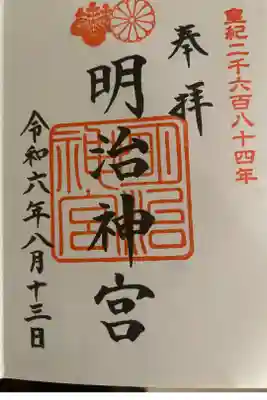 皇紀二千六百八十四年
奉拝
明治神宮
明治神宮
令和六年八月十三日